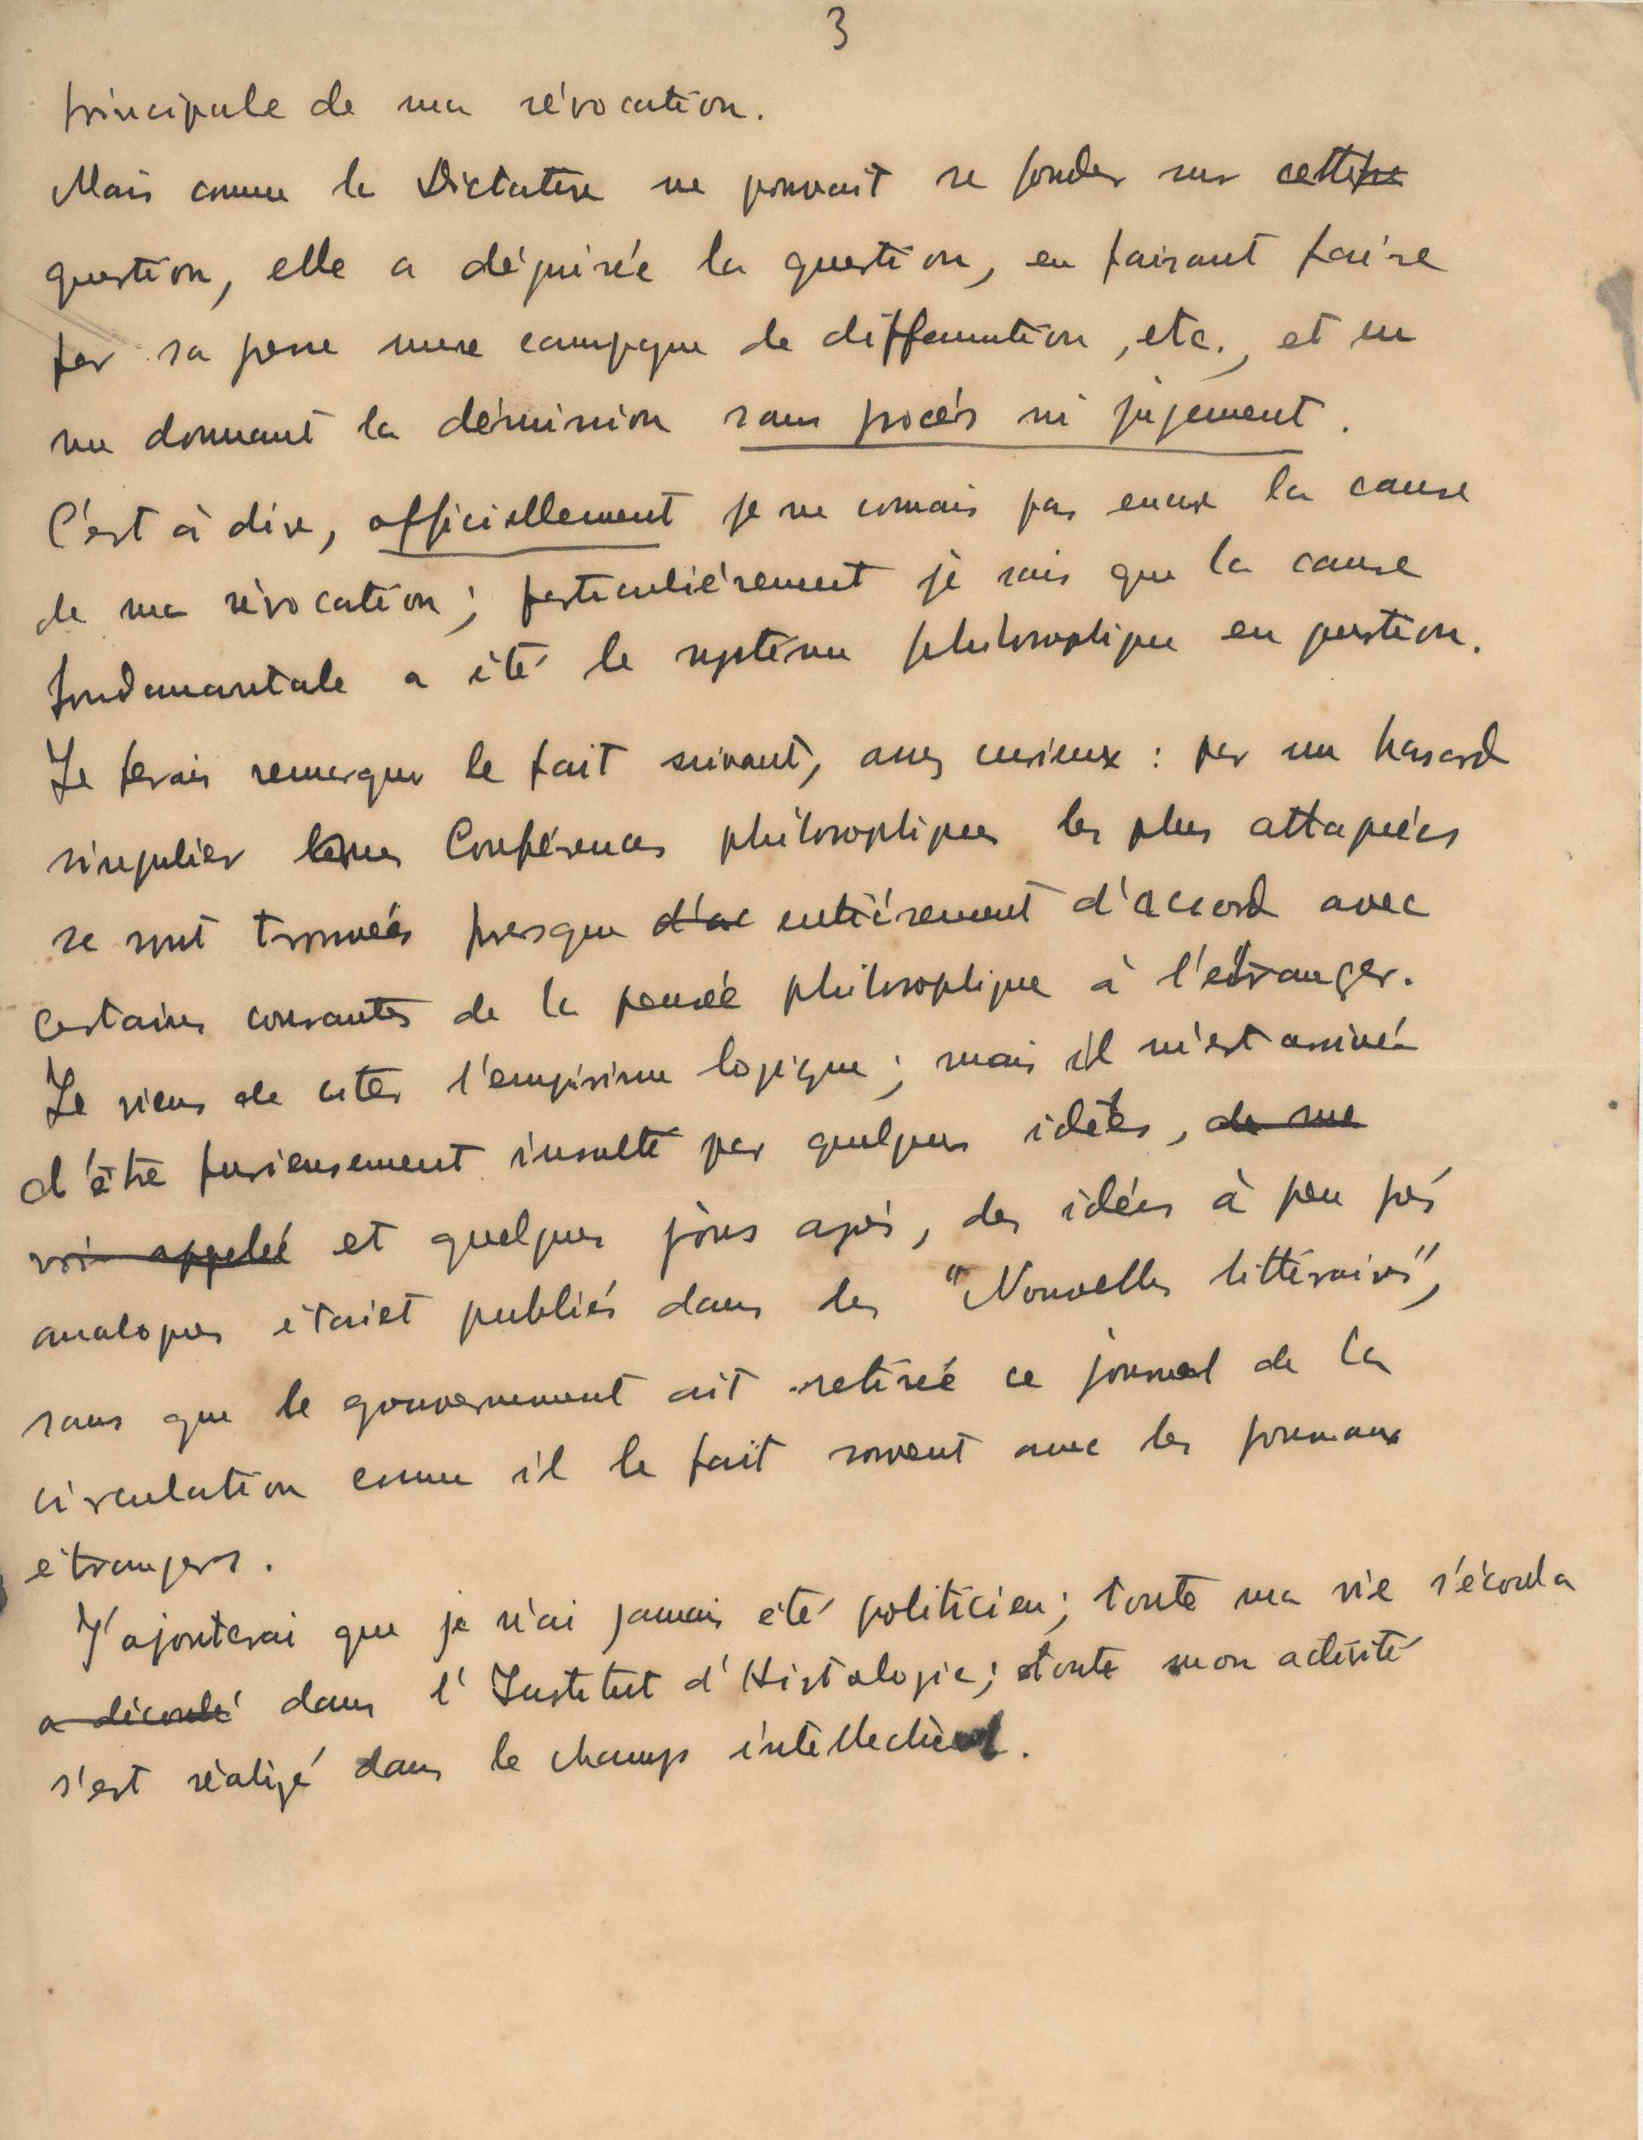 3
principale de ma révocation.
Mais comme la Dictature ne pouvait se fonder sur cette
question, elle a déguisée la question, en faisant faire
par sa presse une campagne de diffamation, etc., et en
me donnant la démission sans procés ni jugement.
C'est à dire, officiellement je ne connais pas encore la cause
de ma révocation; particuliérement je sais que la cause
fondamentale a été le systéme philosophique en question.
Je ferais remarquer le fait suivant, assez curieux: par un hasard
singulier mes Conférences philosophiques les plus attaquées
se sont trouvées presque d'ac entiérement d'accord avec
certaines courantes de la pensée philosophique à l'etranger.
Je viens de citer l'empirisme logique; mais il m'est arrivé
d'être furieusement insulté par quelques idées, de me
voir appelé et quelques jours aprés, des idées à peu prés
analogues étaiet publiés dans les "Nouvelles littéraires",
sans que le gouvernement ait retirée ce journal de la
circulation comme il le fait souvent avec les journaux
étrangers.
J'ajouterai que je n'ai jamais été politicien; toute ma vie s'écoula
a découlé dans l'Institut d'Histologie; toute mon activité
s'est réalizé dans le champs intellectuel.